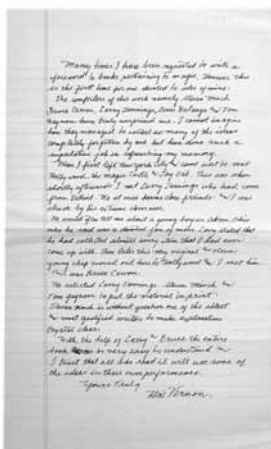 Many times I have been requested to write a
foreword to books pertaining to magic. However this
is the first time for one devoted to ideas of mine.
The compilers of this work namely Steve Minch
Bruce Cervon, Larry Jennings,
have truly surprised me. I cannot imagine
how they managed to collect so many of the ideas
completely forgotten by me but have done such a
job in refreshing my memory.
When I first left New York City and came west to visit
Hollywood, the Magic Castle & Jay Ose. This was when
shortly afterwards I met Larry Jennings who had come
from Detroit. We at once became close friends. I was
struck by his extreme
He would often tell me about a young boy in Akron Ohio
who he said was a devoted fan of mine. Larry stated that
he had collected almost every idea that I had ever
come up with. Then later this very original
young chap moved out here to Hollywood & I met him
was Bruce Cervon.
He enlisted Larry Jennings Steve Minch &
to put the material in print.
Steve Minch is without question one of the ablest
& most qualified writers to make explanations
crystal clear.
With the help of Larry & Bruce the entire
book is very easy to understand
I trust that all who read it will use some of
the ideas in their own performance.
Yours Truly
Dai Vernon.